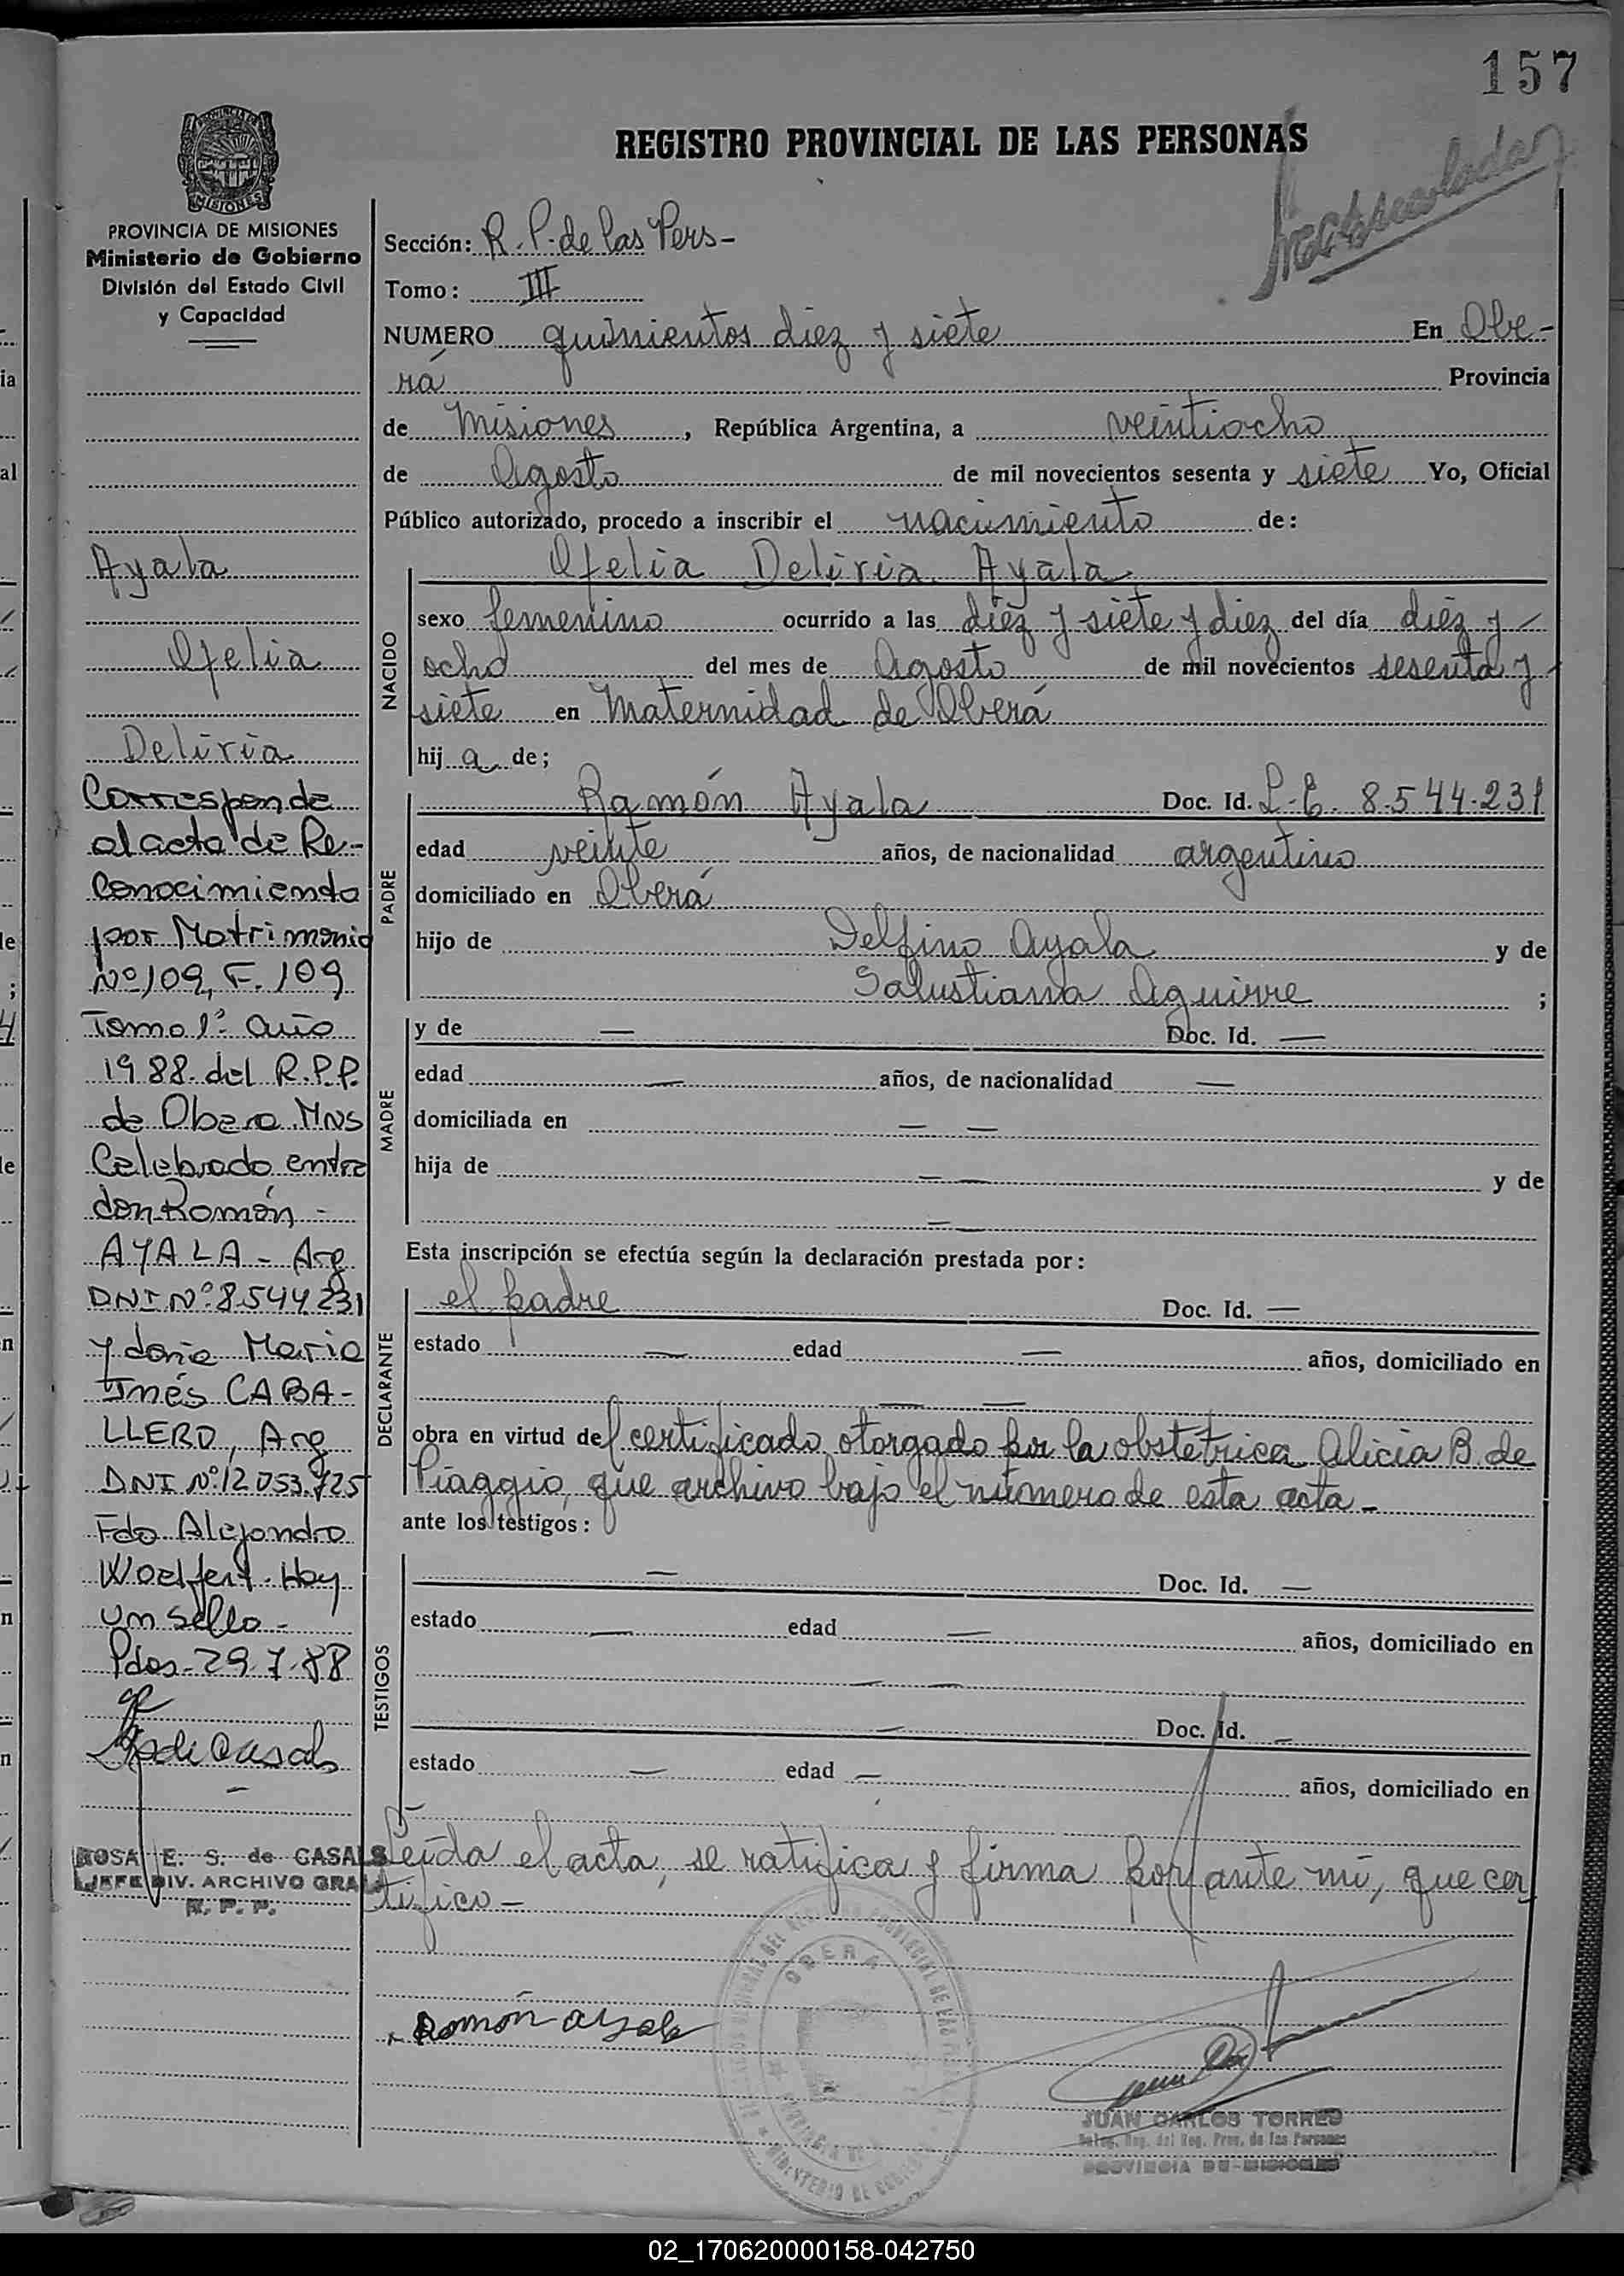 157
REGISTRO PROVINCIAL DE LAS PERSONAS
PROVINCIA DE MISIONES
Ministerio de Gobierno
División del Estado Civil
y Capacidad
Ayala
Ofelia
Deliria
Corresponde
al acta de Re-
conocimiento
por Matrimonio
Nº 109, F. 109
Tomo 1º año
1988 del R.P.P.
de Obera Mns
Celebrado entre
don Román -
AYALA - Arg
DNI Nº 8544231
y doña Maria
Inés CABA-
LLERO, Arg
DNI Nº 12.053.725
Fdo Alejandro
Woelfert. Hay
un sello -
Pdas - 29.7.88
ROSA E. S. de CASALS
JEFE DIV. ARCHIVO GRAL
R. P. P.
Sección: R. P. de las Pers-
Tomo: III
NUMERO quinientos diez y siete En Obe-
rá Provincia
de Misiones, República Argentina, a veintiocho
de Agosto de mil novecientos sesenta y siete Yo, Oficial
Público autorizado, procedo a inscribir el nacimiento de:
Ofelia Deliria Ayala
NACIDO
sexo femenino ocurrido a las diez y siete y diez del día diez y
ocho del mes de Agosto de mil novecientos sesenta y
siete en Maternidad de Oberá
hij a de;
PADRE
Ramón Ayala Doc. Id. L-E. 8.544.231
edad veinte años, de nacionalidad argentino
domiciliado en Oberá
hijo de Delfino Ayala y de
Salustiana Aguirre ;
MADRE
y de — Doc. Id. —
edad — años, de nacionalidad —
domiciliada en — —
hija de — — y de
— —
Esta inscripción se efectúa según la declaración prestada por:
DECLARANTE
el padre Doc. Id. —
estado — edad — años, domiciliado en
— —
obra en virtud del certificado otorgado por la obstetrica Alicia B. de
Piaggio, que archivo bajo el número de esta acta -
ante los testigos:
TESTIGOS
— Doc. Id. —
estado — edad — años, domiciliado en
— —
— Doc. Id. —
estado — edad — años, domiciliado en
Leída el acta, se ratifica y firma por ante mí, que cer
tifico -
Ramón Ayala
OBERA
JUAN CARLOS TORRES
Deleg. Reg. del Reg. Prov. de las Personas
PROVINCIA DE MISIONES
02_170620000158-042750